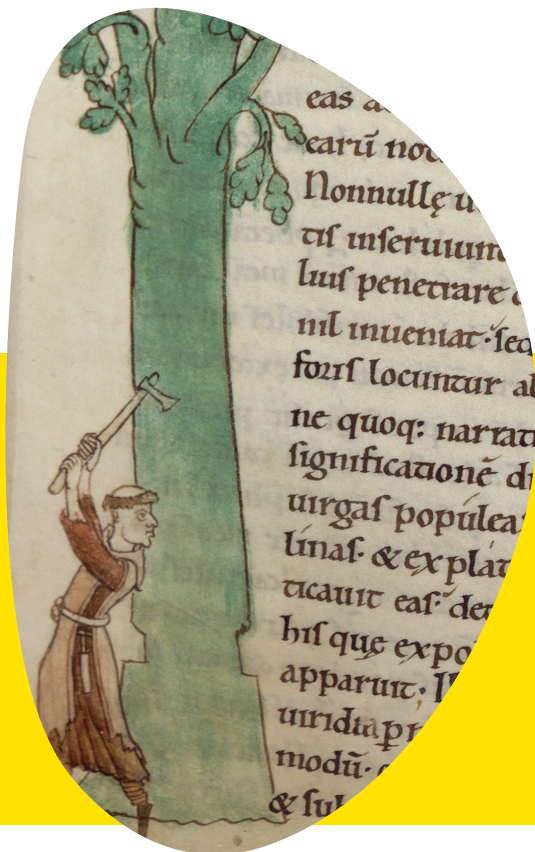 eas
earū
Nonnullę
tis inseruiunt
lius penetrare
nil inueniat· sed
foris locuntur
ne quoq: narrati
significationē di
uirgas populea
linas· & ex plat
ticauit eas· de
his quę expo
apparuit·
uiridia
modū·
& sub